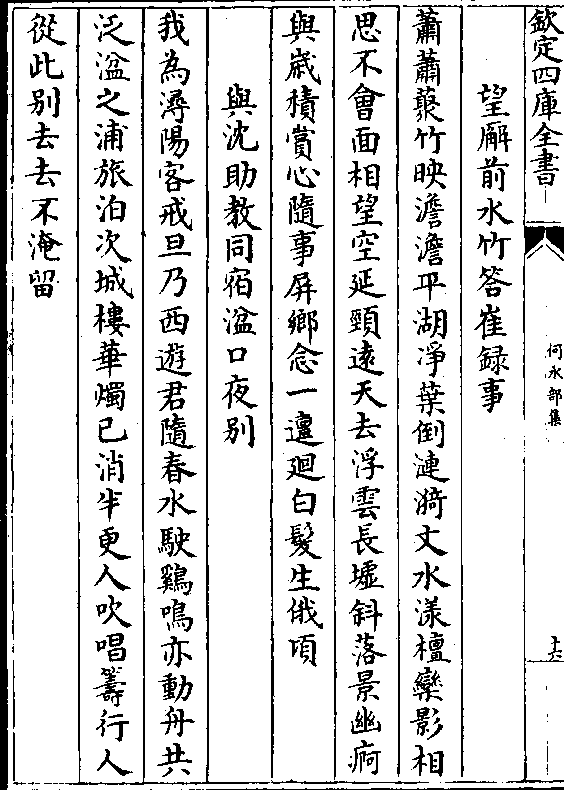 欽定四庫全書
何水部集
十六
望廨前水竹答崔録事
蕭蕭藂竹映澹澹平湖淨葉倒漣漪文水漾檀欒影相
思不會面相望空延頸遠天去浮雲長墟斜落景幽痾
與嵗積賞心隨事屏鄉念一邅廻白髪生俄頃
與沈助教同宿湓口夜别
我為潯陽客戒旦乃西遊君隨春水駛鷄鳴亦動舟共
泛湓之浦旅泊次城樓華燭已消半更人吹唱籌行人
從此别去去不淹留